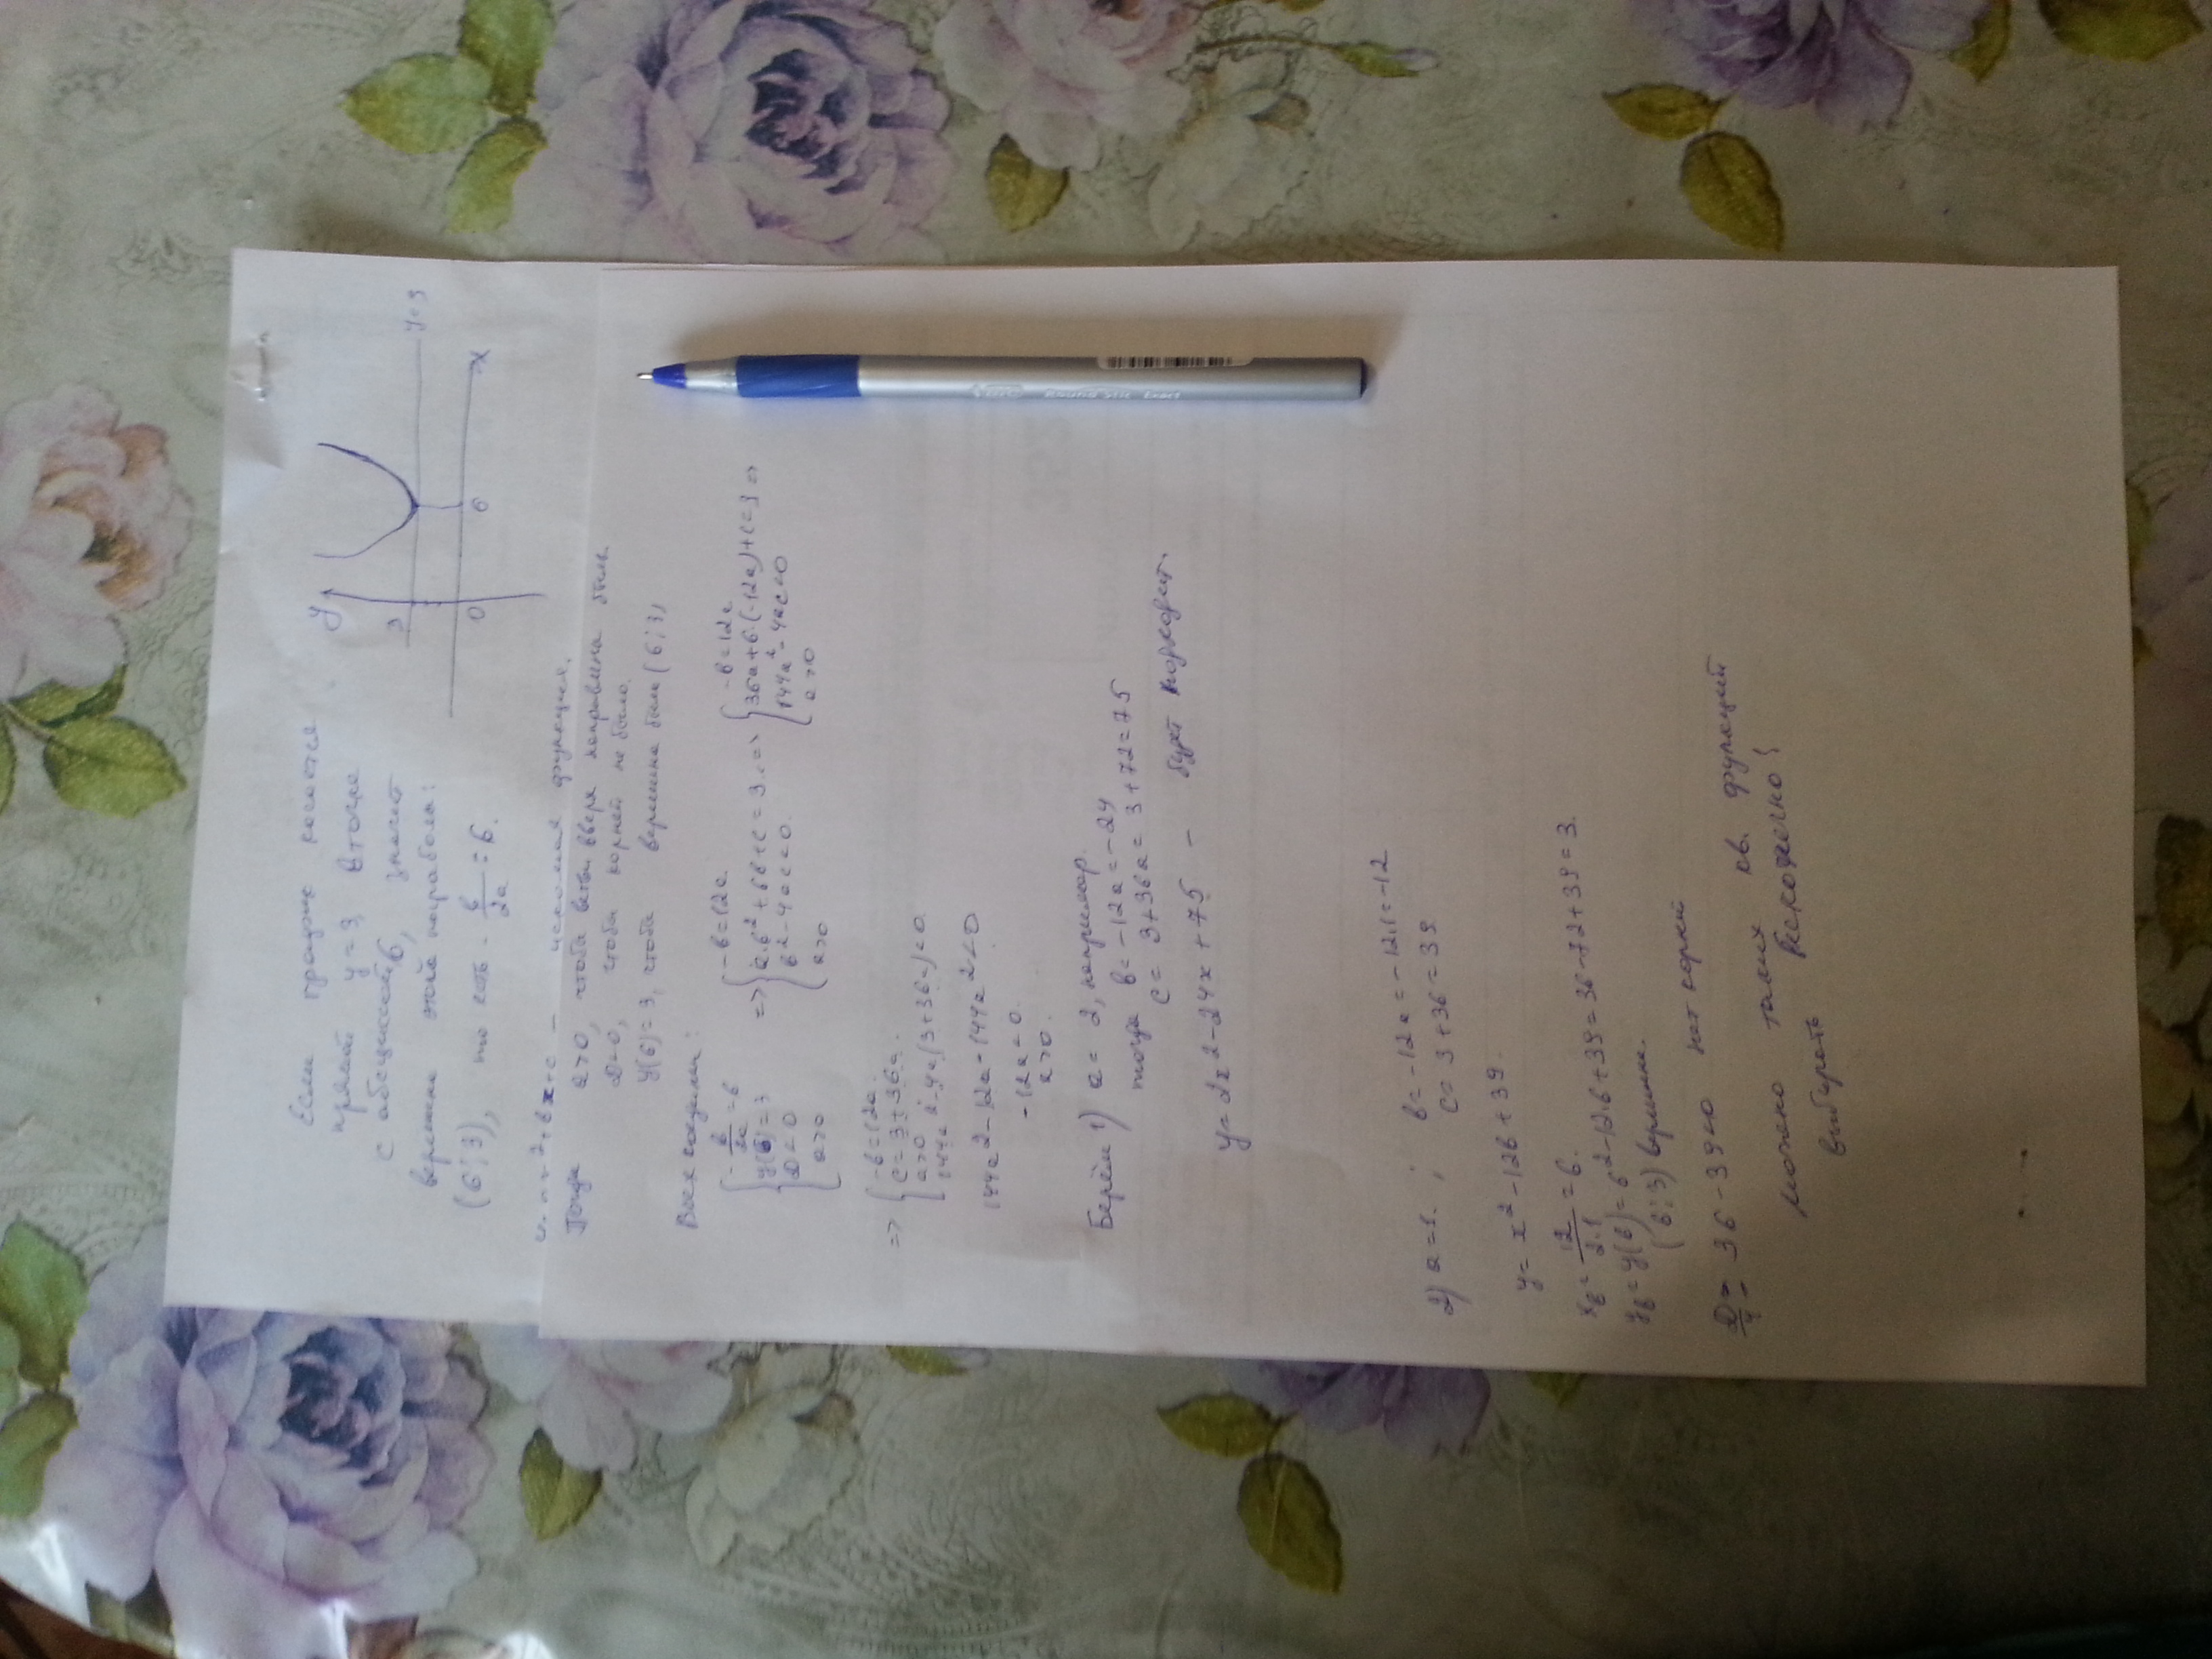 Если график касается
прямой y=3 в точке
с абсциссой 6, значит
вершина этой параболы:
(6;3), то есть -b/2a = 6.
y
3
y=3
0
6
x
x²+bx+c — искомая функция.
Тогда a>0, чтобы ветвь вверх направлена была
D<0, чтобы корней не было.
y(6)=3, чтобы вершина была (6;3)
{-b/2a=6
y(6)=3
D<0
a>0
=> {-b=12a
a·6²+6b+c=3 =>
b²-4ac<0
a>0
{-b=12a
36a+6·(-12a)+c=3 =>
144a²-4ac<0
a>0
=> {-b=12a
c=3+36a
a>0
144a²-4a(3+36a)<0
144a²-12a-144a²<0
-12a<0
a>0.
Берём 1) a=2, например.
тогда b=-12a=-24
c=3+36a=3+72=75
y=2x²-24x+75 — будет подходит.
2) a=1. ; b=-12a=-12·1=-12
c=3+36=39
y=x²-12x+39.
xв=12/2·1=6.
yв=y(6)=6²-12·6+39=36-72+39=3.
(6;3) вершина.
D/4=36-39<0 нет корней
можно таких кв. функций
выбирать бесконечно
BIC Round Stic Exact